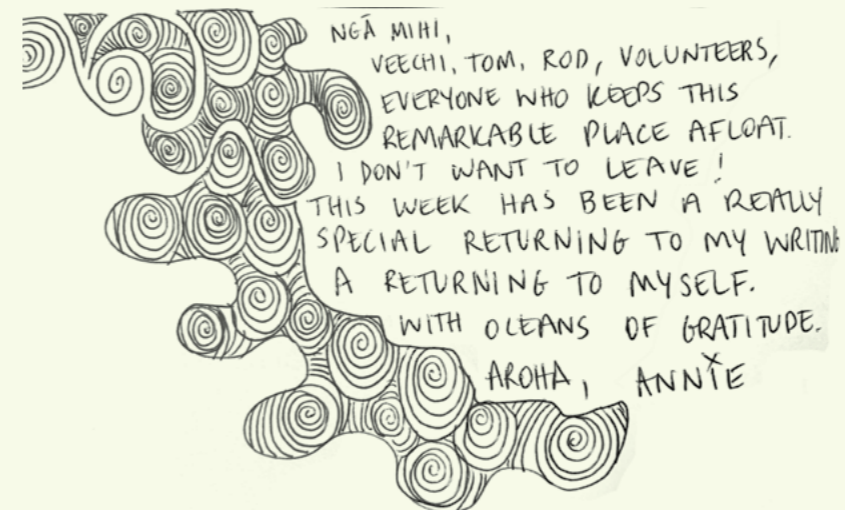 NGĀ MIHI,
VEECHI, TOM, ROD, VOLUNTEERS,
EVERYONE WHO KEEPS THIS
REMARKABLE PLACE AFLOAT.
I DON'T WANT TO LEAVE!
THIS WEEK HAS BEEN A REALLY
SPECIAL RETURNING TO MY WRITING
A RETURNING TO MYSELF.
WITH OCEANS OF GRATITUDE.
AROHA, ANNIE X